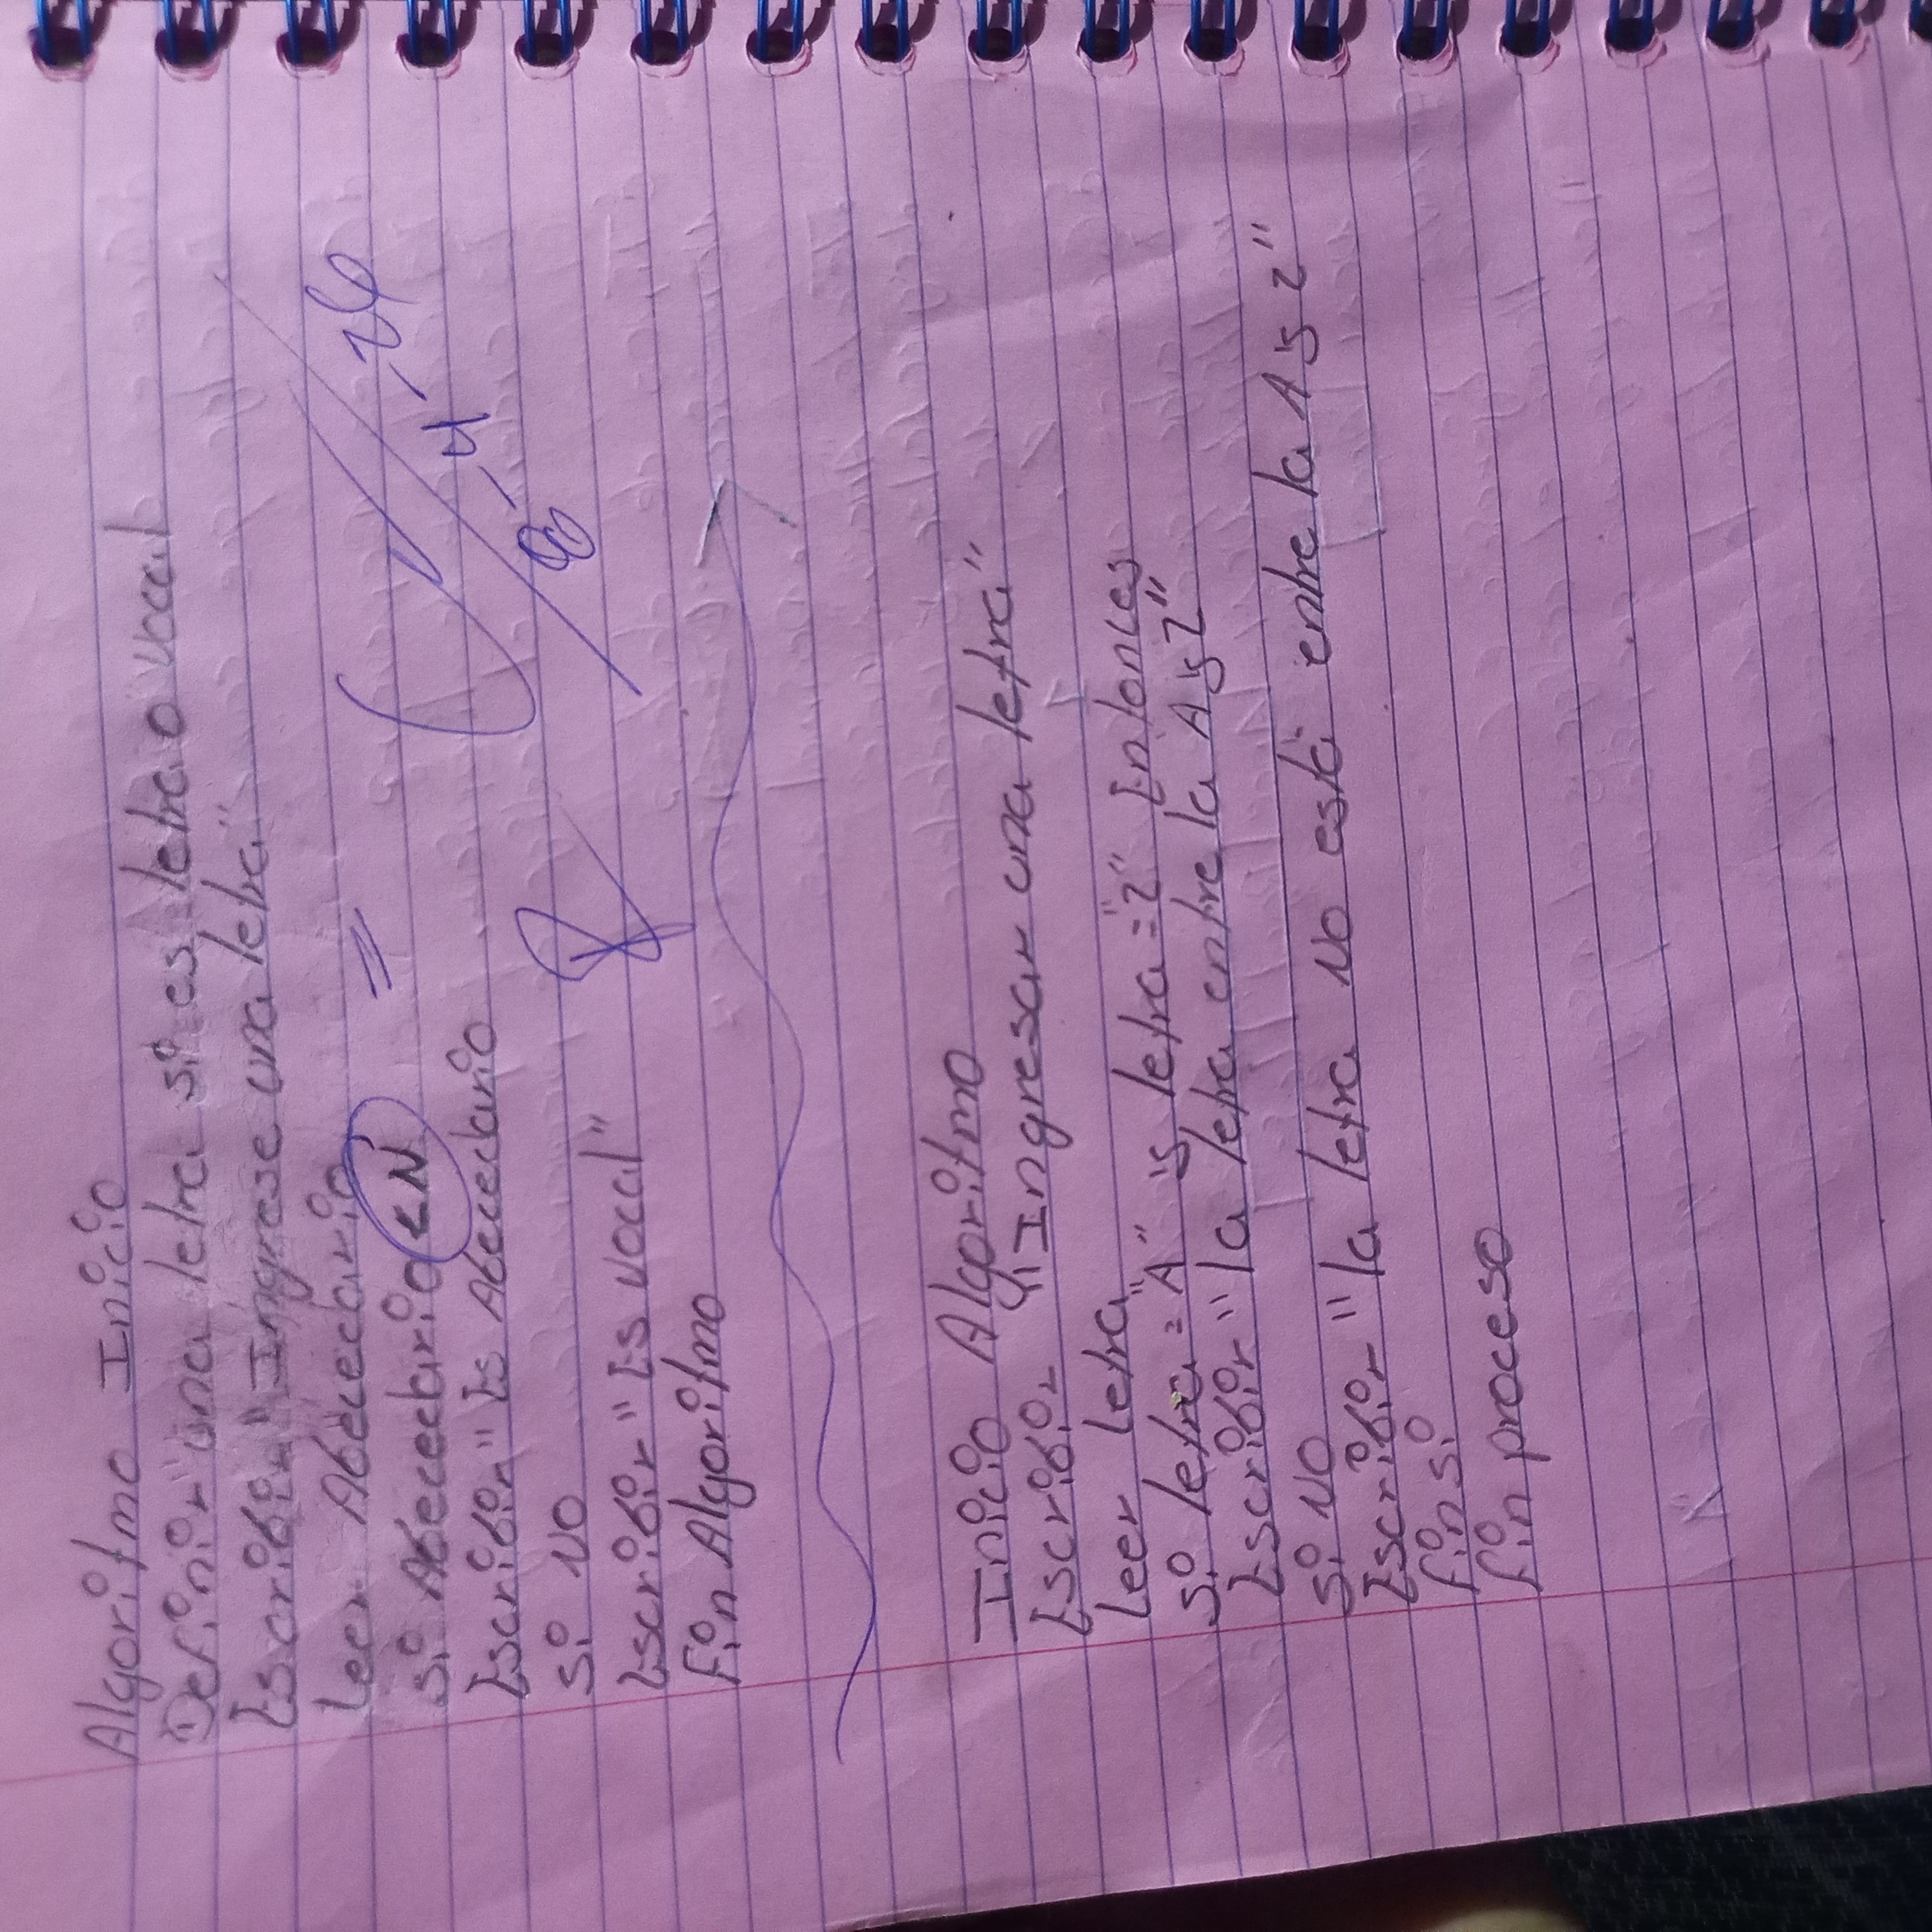 Algoritmo Inicio
Definir una letra si es letra o vocal
Escribir "Ingrese una letra"
Leer Abecedario
si Abecedario < N
Escribir "Es Abecedario
si NO
Escribir "Es vocal"
Fin Algoritmo
8-4-26
Inicio Algoritmo
Escribir "Ingresar una letra"
Leer letra
si letra = "A" y letra = "Z" Entonces
Escribir "la letra entre la A y Z"
si NO
Escribir "la letra NO está entre la A y Z"
fin si
fin proceso